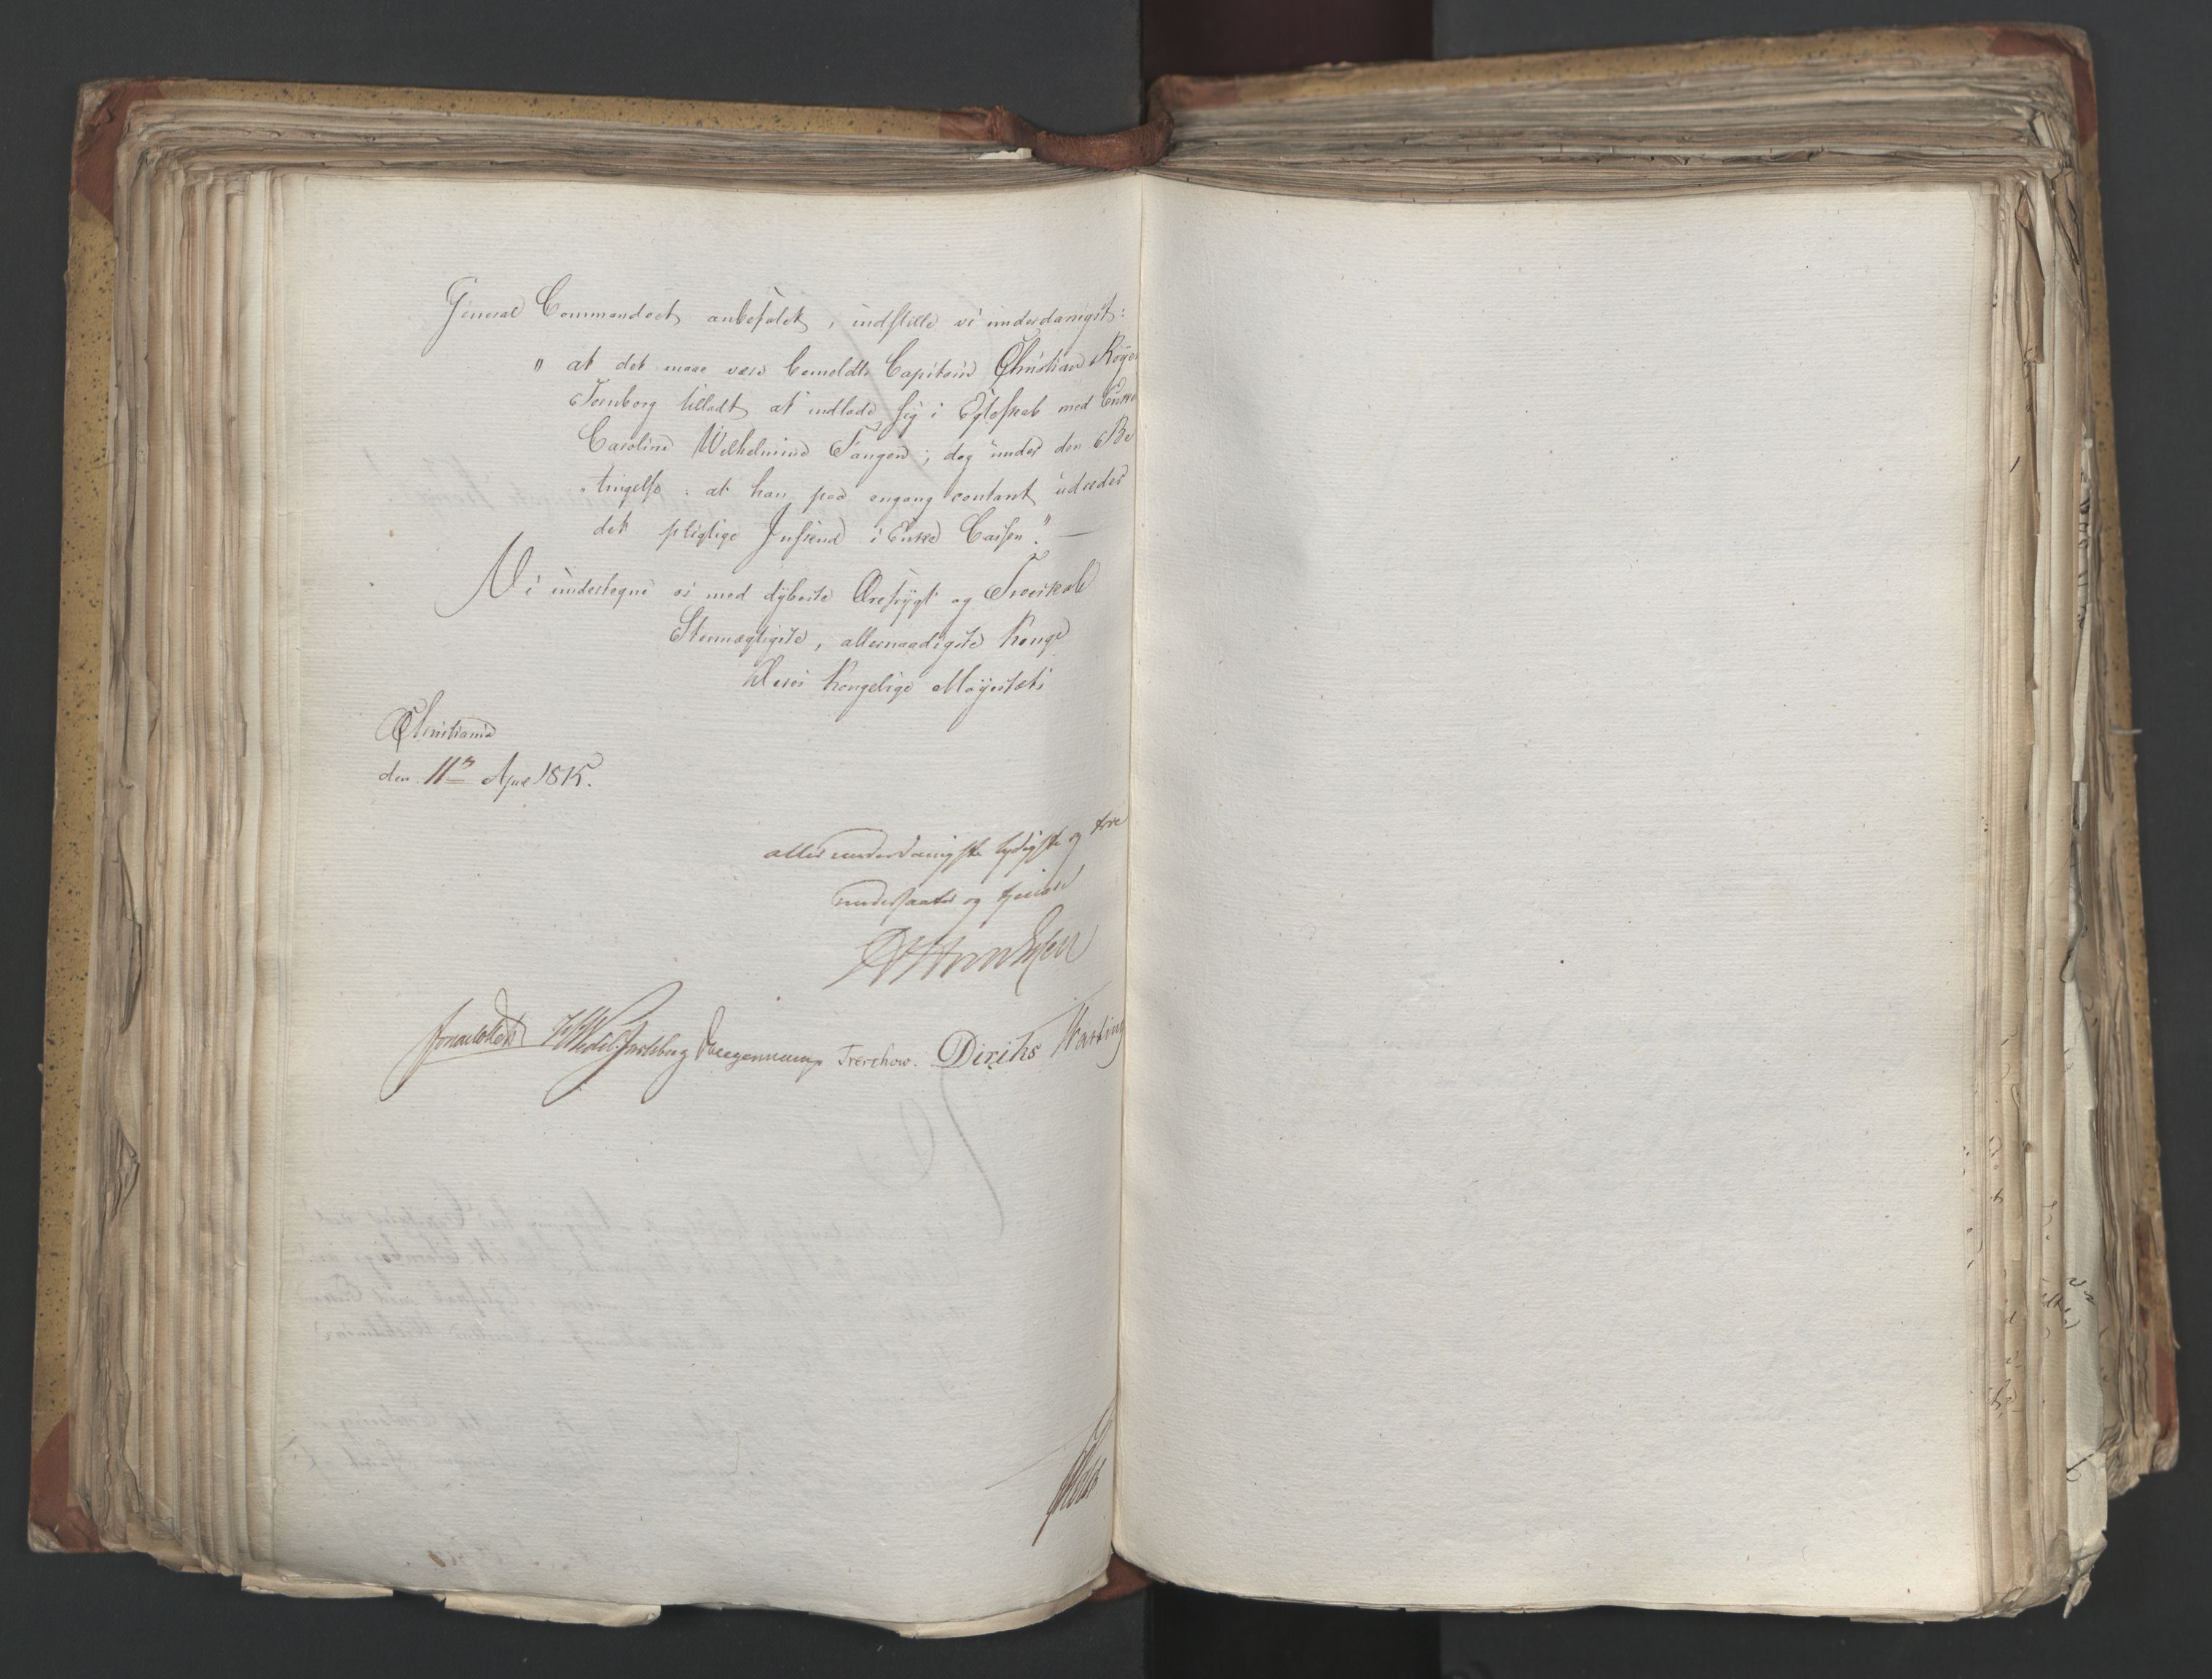 General Commandoet anbefalet, indstille vi underdanigst:
" at det maae være bemeldte Capitain Christian Røyer
Ternborg tilladt at indlade sig i Egteskab med Enke
Caroline Wilhelmine Tangen; dog under den Be
tingelse: at han paa engang contant udreder
det pligtige Indskud i Enke Cassen". —
Vi undertegne os med dybeste Ærefrygt og Troeskab
Stormægtigste, allernaadigste Konge
Deres Kongelige Mayestæts
Christiania
den 11te Apr 1815.
allerunderdanigste lydigste og troe
undersaatter og tjenere
Jonas Collett Wedel Jarlsberg Treschow. Diriks